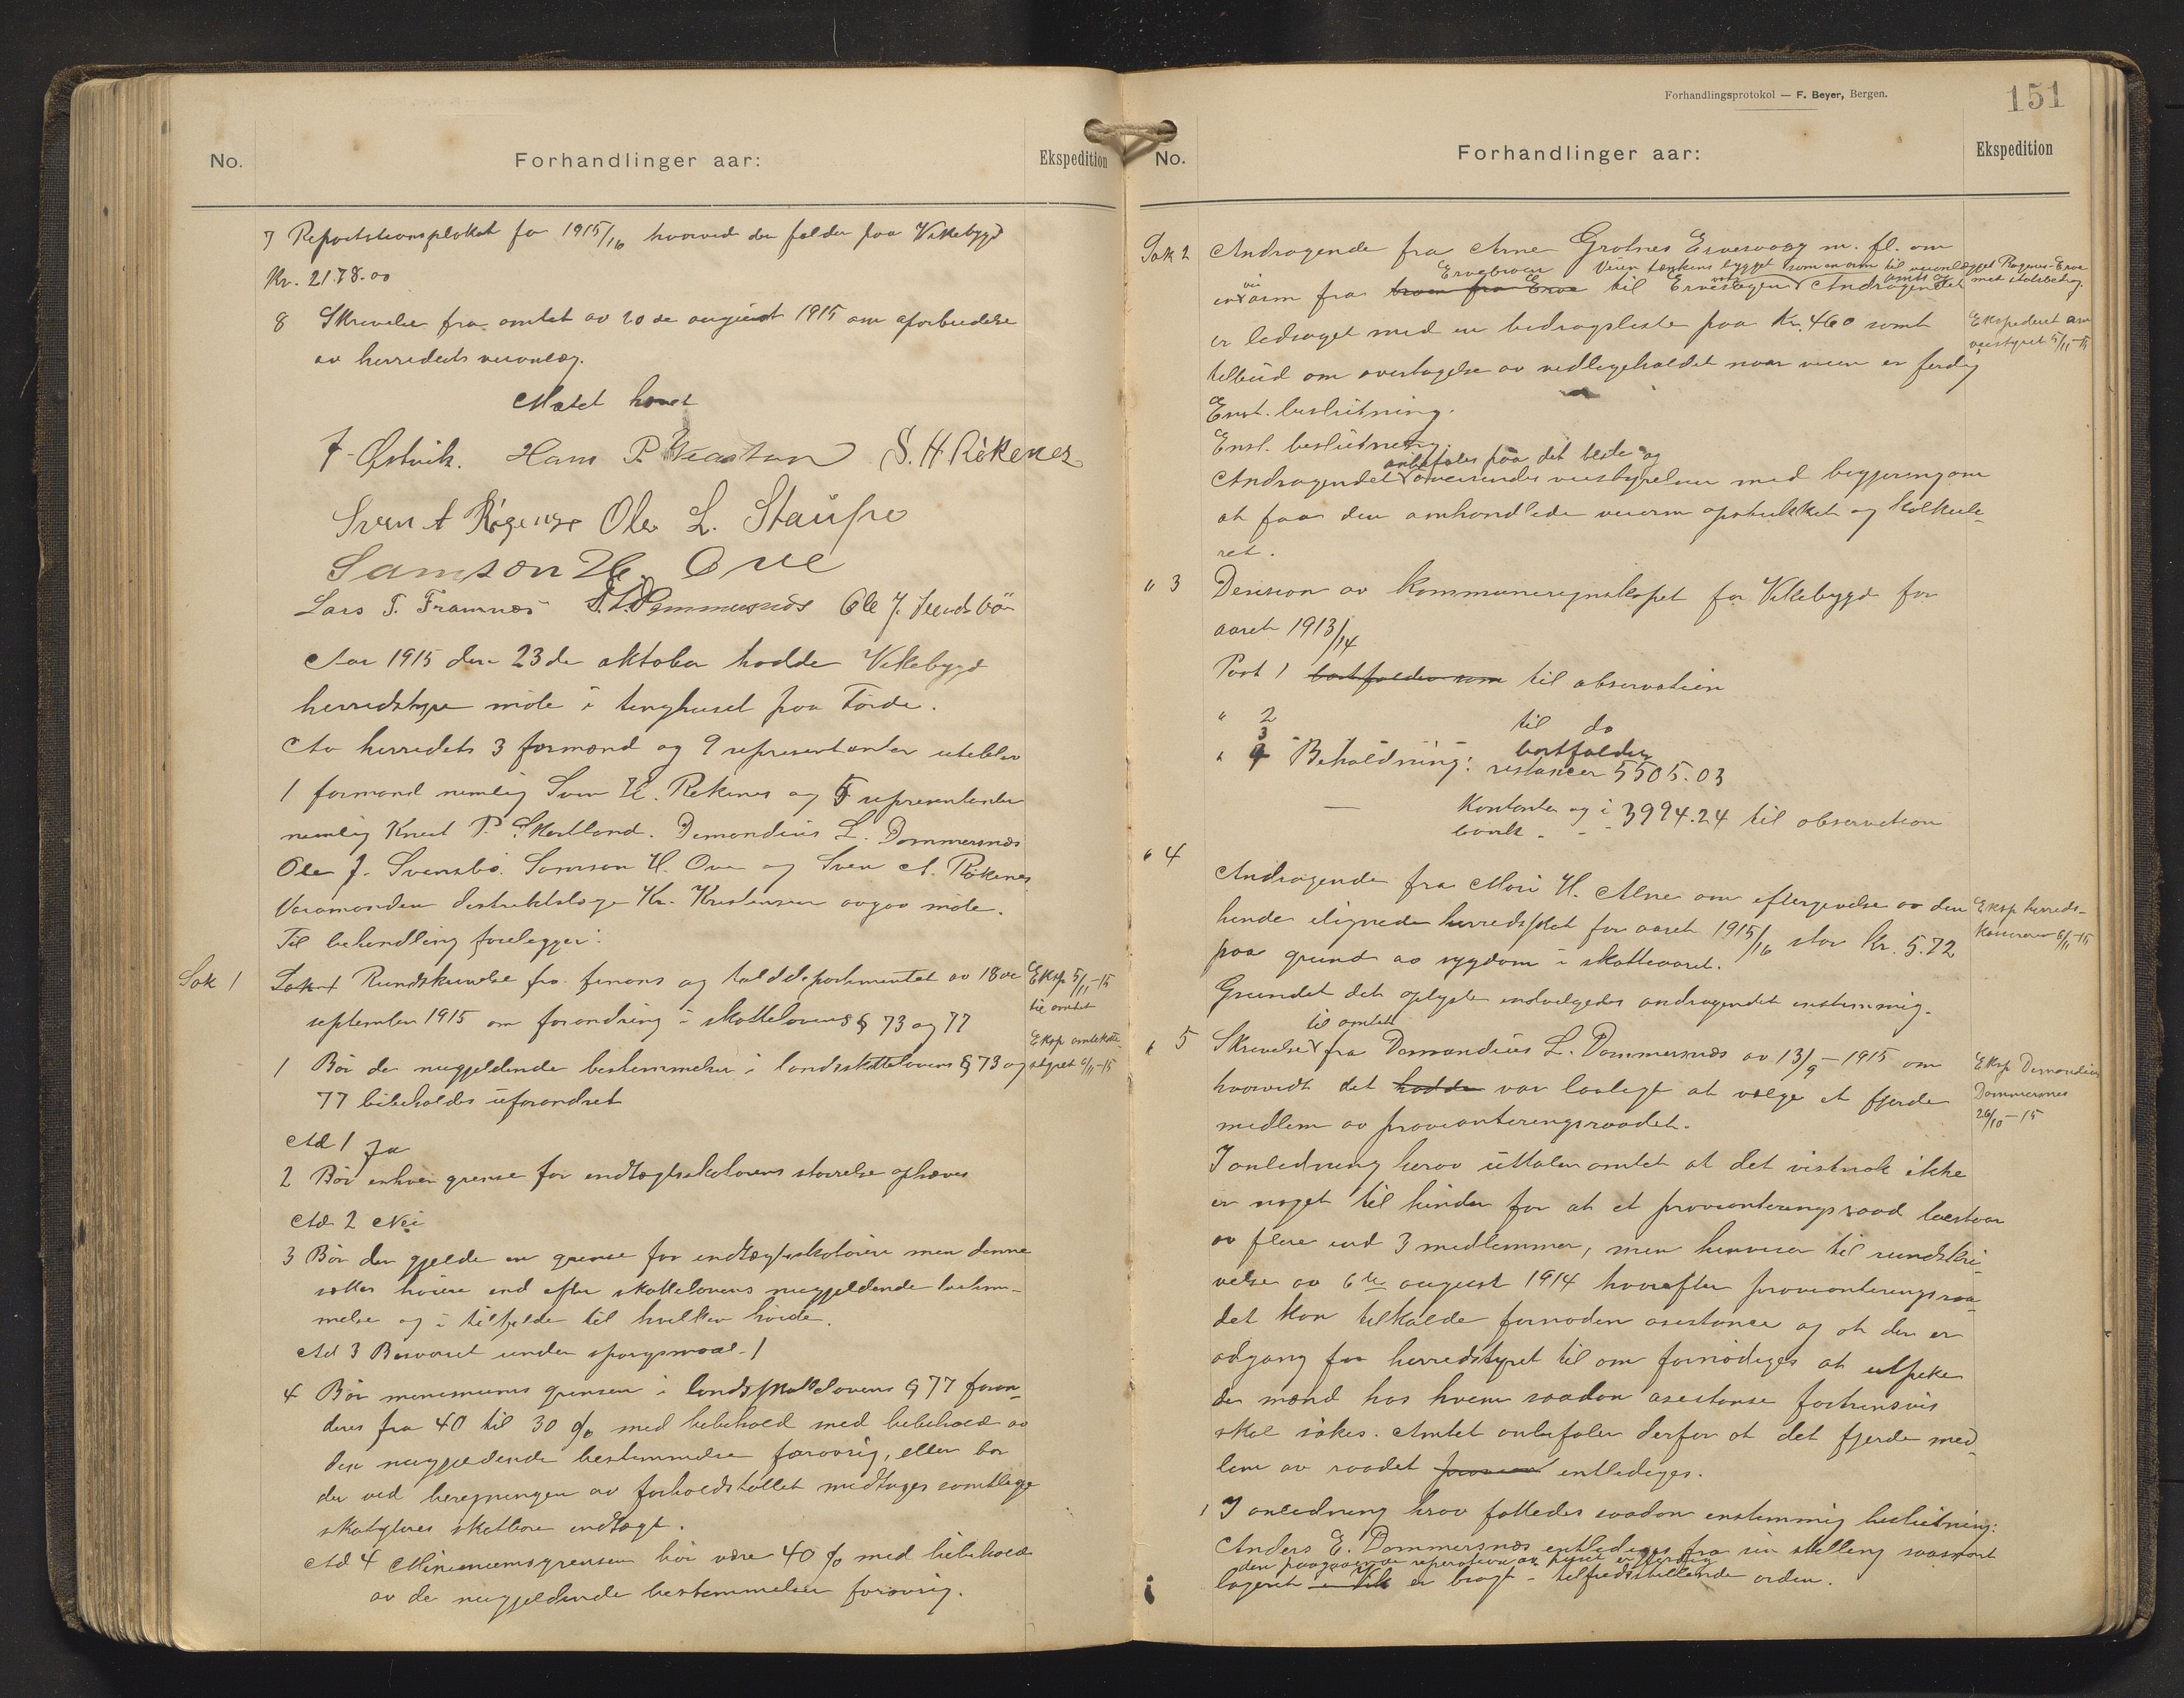 No.
Forhandlinger aar:
Ekspedition
7 Repartitionsplakat for 1915/16 hvorved der falder paa Vikebygd
Kr. 2178.00
8 Skrivelse fra amtet av 20de august 1915 om
av herredets veianlæg.
Møtet hævet
Hans P. S. H. Rökenes
Ole L. Staupe
Samson H. Ove
Lars T. Framnes
Aar 1915 den 23de oktober hadde Vikebygd
herredstyre möte i tinghuset paa Förde.
Av herredets 3 formænd og 9 representanter uteblev
1 formand nemlig Sven H. Rökenes og 5 representanter
nemlig Knut P. Skartland. Demandius L. Dommersnes
Ole J. Svensbö. Samson H. Ove og Sven A. Rökenes
Varamanden distriktslæge Kr. Kristensen avgav möte.
Til behandling forelegger:
Sak 1
Sak 1 Rundskrivelse fra finans og tolddepartmentet av 18de
september 1915 om forandring i skattelovens § 73 og 77
Eksp 5/11-15
til amtet
Eksp amtskatte-
styret 6/11-15
1 Bör de nugjeldende bestemmelser i landsskattelovens § 73 og
77 bibeholdes uforandret
Ad 1 Ja
2 Bör enhver grense for indtægtsskatörens störrelse ophæves
Ad 2 Nei
3 Bör der gjelde en grense for indtægtsskatören men denne
sættes höiere end efter skattelovens nugjeldende bestem-
melse og i tilfelde til hvilken höide.
Ad 3 Besvaret under spörgsmaal 1
4 Bör minimums grensen i landsskattelovens § 77 foran-
dres fra 40 til 30 % med bibehold med bibehold av
den nugjeldende bestemmelse forövrig, eller bör
der ved beregningen av forholdstallet medtages samtlige
skatyteres skatbare indtægt.
Ad 4 Minimumsgrensen bör være 40 % med bibehold
av de nugjeldende bestemmelser forövrig.
Forhandlingsprotokol — F. Beyer, Bergen.
151
No.
Forhandlinger aar:
Ekspedition
Sak 2 Andragende fra Arne Grotnes Ervesvaag m. fl. om
Ervebroen Veien tænkes bygget som en arm til veianlægget Røgnes-Erve
amts og med statsbidrag
vei
en arm fra broen fra Erve til Andragendet
er ledsaget med en bidragsliste paa Kr. 460 samt
Ekspederet am
veistyret 5/11-15
tilbud om overtagelse av vedlegeholdet naar veien er ferdig
Enst. beslutning.
Enst. beslutning.
anbefales paa det beste og
Andragendet oversendes veistyrelsen med begjering om
at faa den omhandlede veiarm opstukket og kalkule-
ret.
" 3 Desision av kommuneregnskapet for Vikebygd for
aaret 1913/14
Post 1 bortfalder som til observation
" 2 til do
3 bortfalder
" 4 Beholdning: restancer 5505.03
— Kontanter og i
bank - - - 3994.24 til observation
" 4
Andragende fra Mari H. Alne om eftergivelse av den
hende ilignede herredskat for aaret 1915/16 stor Kr. 5.72
paa grund av sygdom i skatteaaret.
Eksp herreds-
kasserer 6/11-15
Grundet det oplyste indvilgedes andragendet enstemmig.
til amtet
" 5 Skrivelse fra Demandius L. Dommersnes av 13/9-1915 om
hvorvidt det hadde var lovligt at vælge et fjerde
medlem av provianteringsraadet.
Eksp Demandius
Dommersnes
26/10-15
I anledning herav uttaler amtet at det vistnok ikke
er noget til hinder for at et provianteringsraad bestaar
av flere end 3 medlemmer, men henviser til rundskri-
velse av 6te august 1914 hvorefter provianteringsraa-
det kan tilkalde fornöden asistance og at der er
adgang for herredstyret til om fornödiges at utpeke
de mænd hos hvem saadan asistanse fortrinsvis
skal sökes. Amtet anbefaler derfor at det fjerde med-
lem av raadet entlediges.
I anledning herav fattedes saadan enstemmig beslutning:
Anders E. Dommersnes entlediges fra sin stilling saasnart
den paagaaende reperation av huset er færdig
lageret er bragt i tilfredsstillende orden.